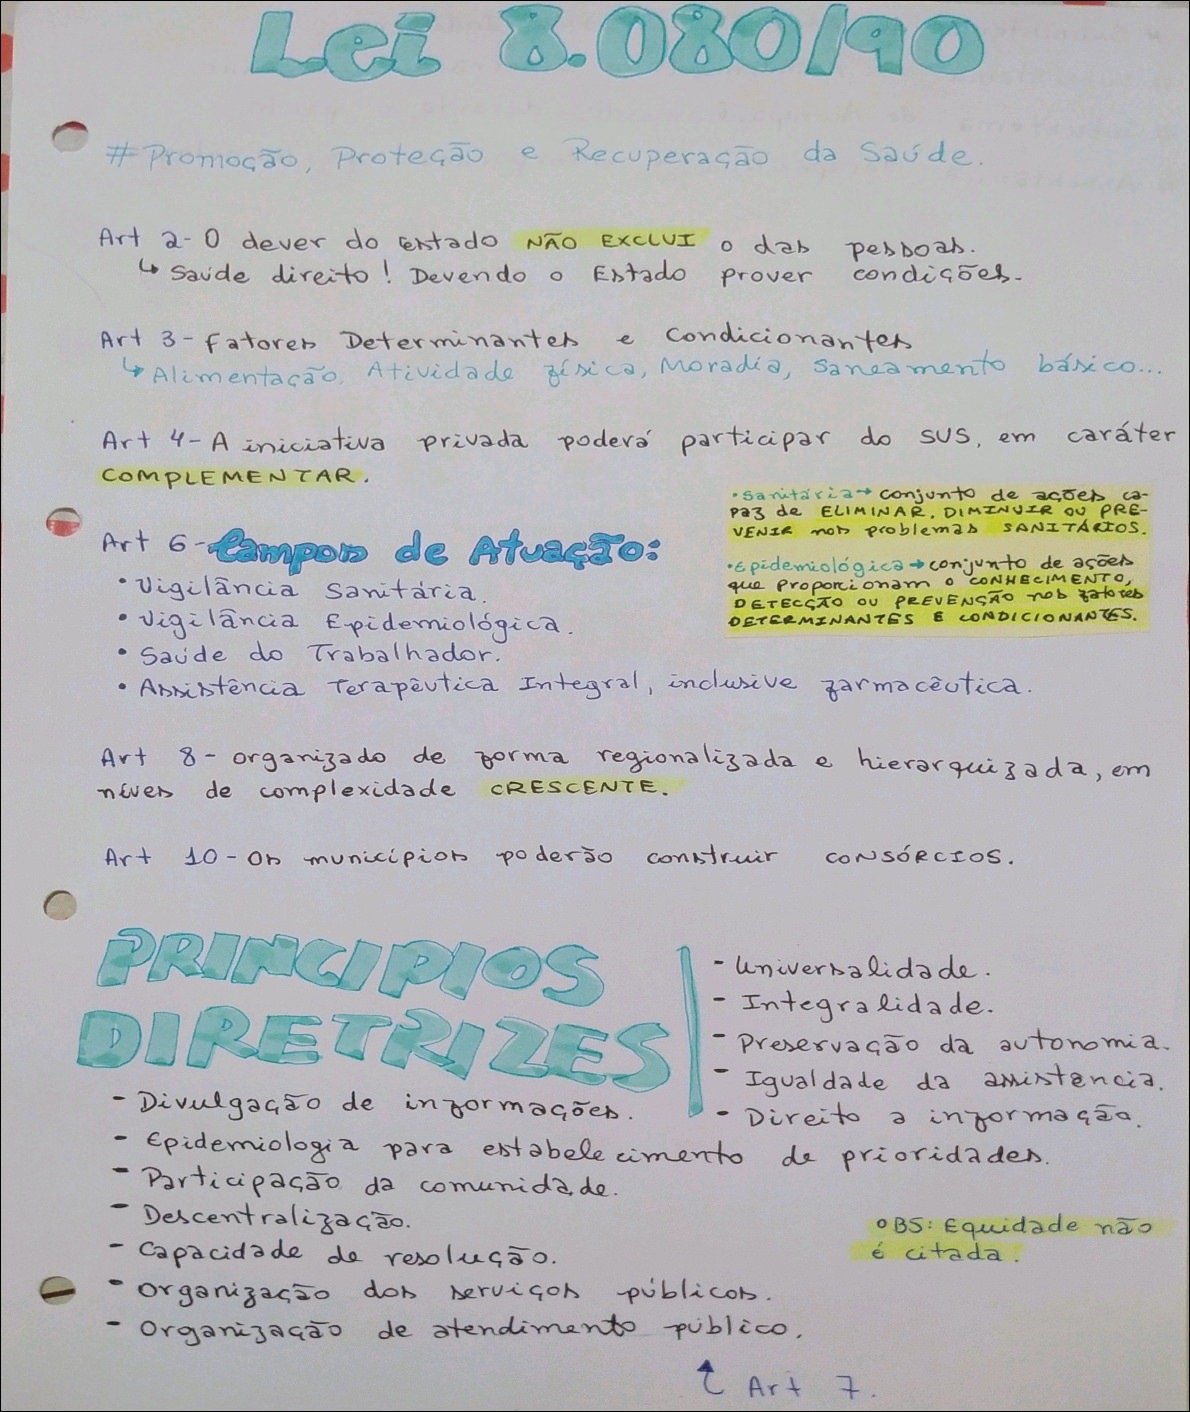 Lei 8.080/90
# Promoção, Proteção e Recuperação da Saúde.
Art 2- O dever do Estado NÃO EXCLUI o das pessoas.
↳ Saúde direito! Devendo o Estado prover condições.
Art 3- Fatores Determinantes e Condicionantes
↳ Alimentação, Atividade física, Moradia, Saneamento básico...
Art 4- A iniciativa privada poderá participar do SUS, em caráter
COMPLEMENTAR.
• Sanitária → conjunto de ações ca-
paz de ELIMINAR, DIMINUIR OU PRE-
VENIR nos problemas SANITÁRIOS.
• Epidemiológica → conjunto de ações
que proporcionam o CONHECIMENTO,
DETECÇÃO OU PREVENÇÃO nos fatores
DETERMINANTES E CONDICIONANTES.
Art 6- Campos de Atuação:
• Vigilância Sanitária.
• Vigilância Epidemiológica.
• Saúde do Trabalhador.
• Assistência Terapêutica Integral, inclusive farmacêutica.
Art 8- organizado de forma regionalizada e hierarquizada, em
níves de complexidade CRESCENTE.
Art 10- Os municípios poderão construir CONSÓRCIOS.
PRINCIPIOS
DIRETRIZES
- Universalidade.
- Integralidade.
- Preservação da autonomia.
- Igualdade da assistência.
- Direito a informação.
- Divulgação de informações.
- Epidemiologia para estabelecimento de prioridades.
- Participação da comunidade.
- Descentralização.
- Capacidade de resolução.
- Organização dos serviços públicos.
- Organização de atendimento público.
OBS: Equidade não
é citada.
Art 7.